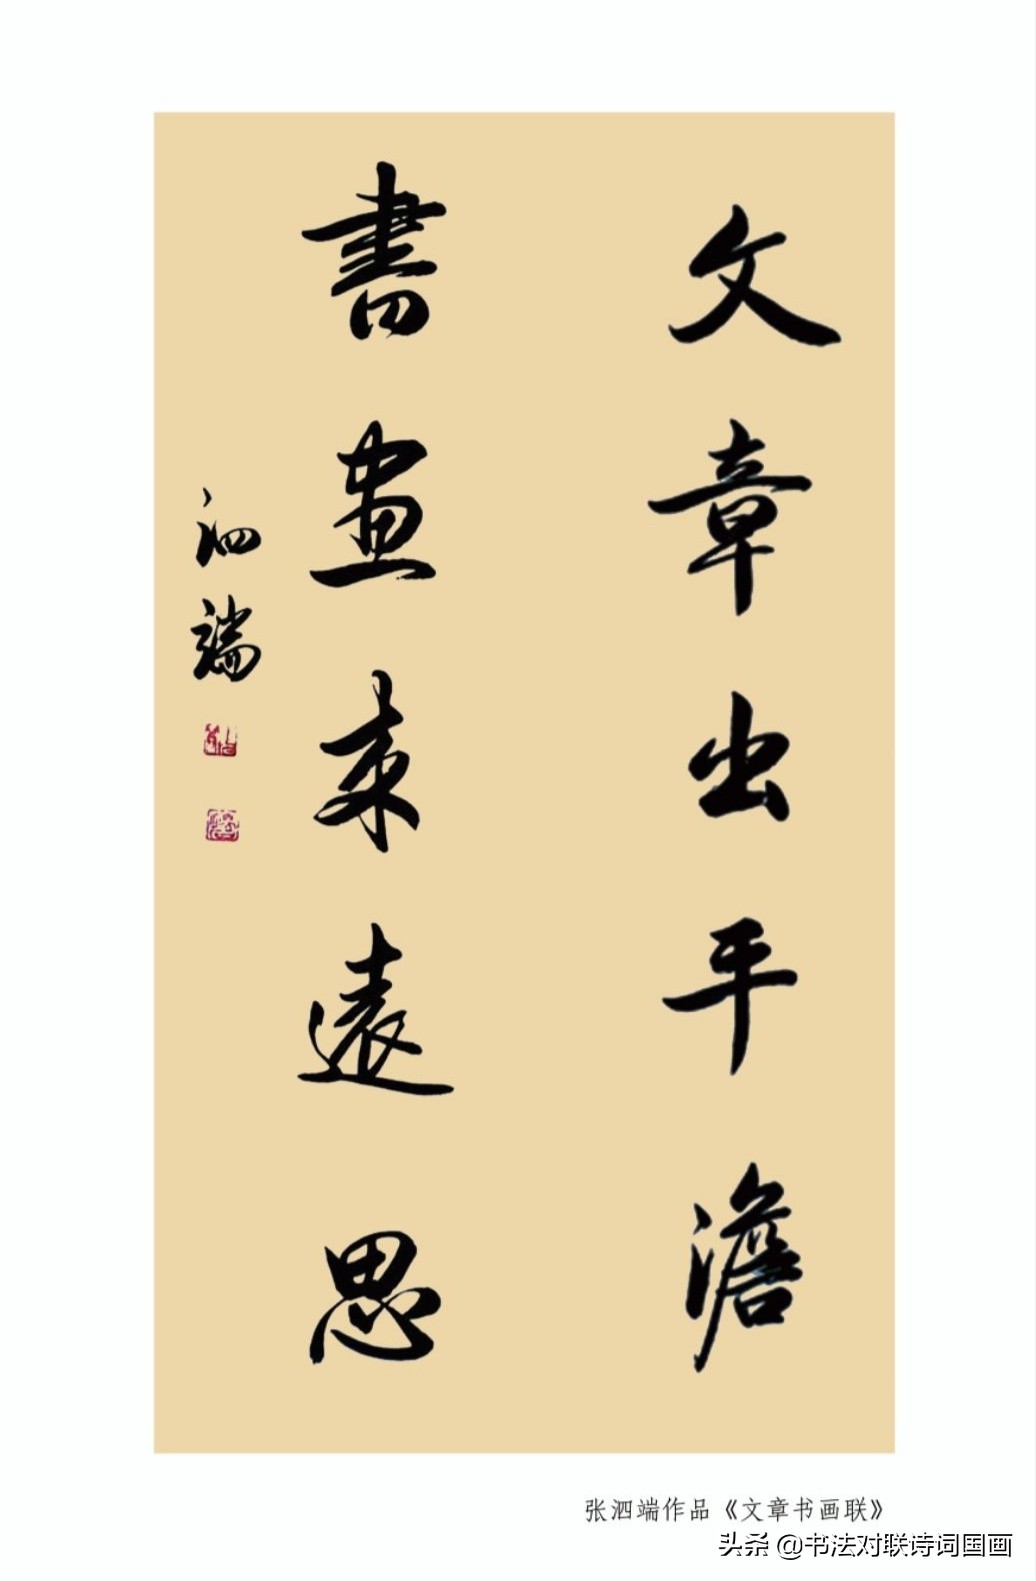 文章出平澹
書畫来遠思
泗端
张泗端作品《文章书画联》
头条 @书法对联诗词国画